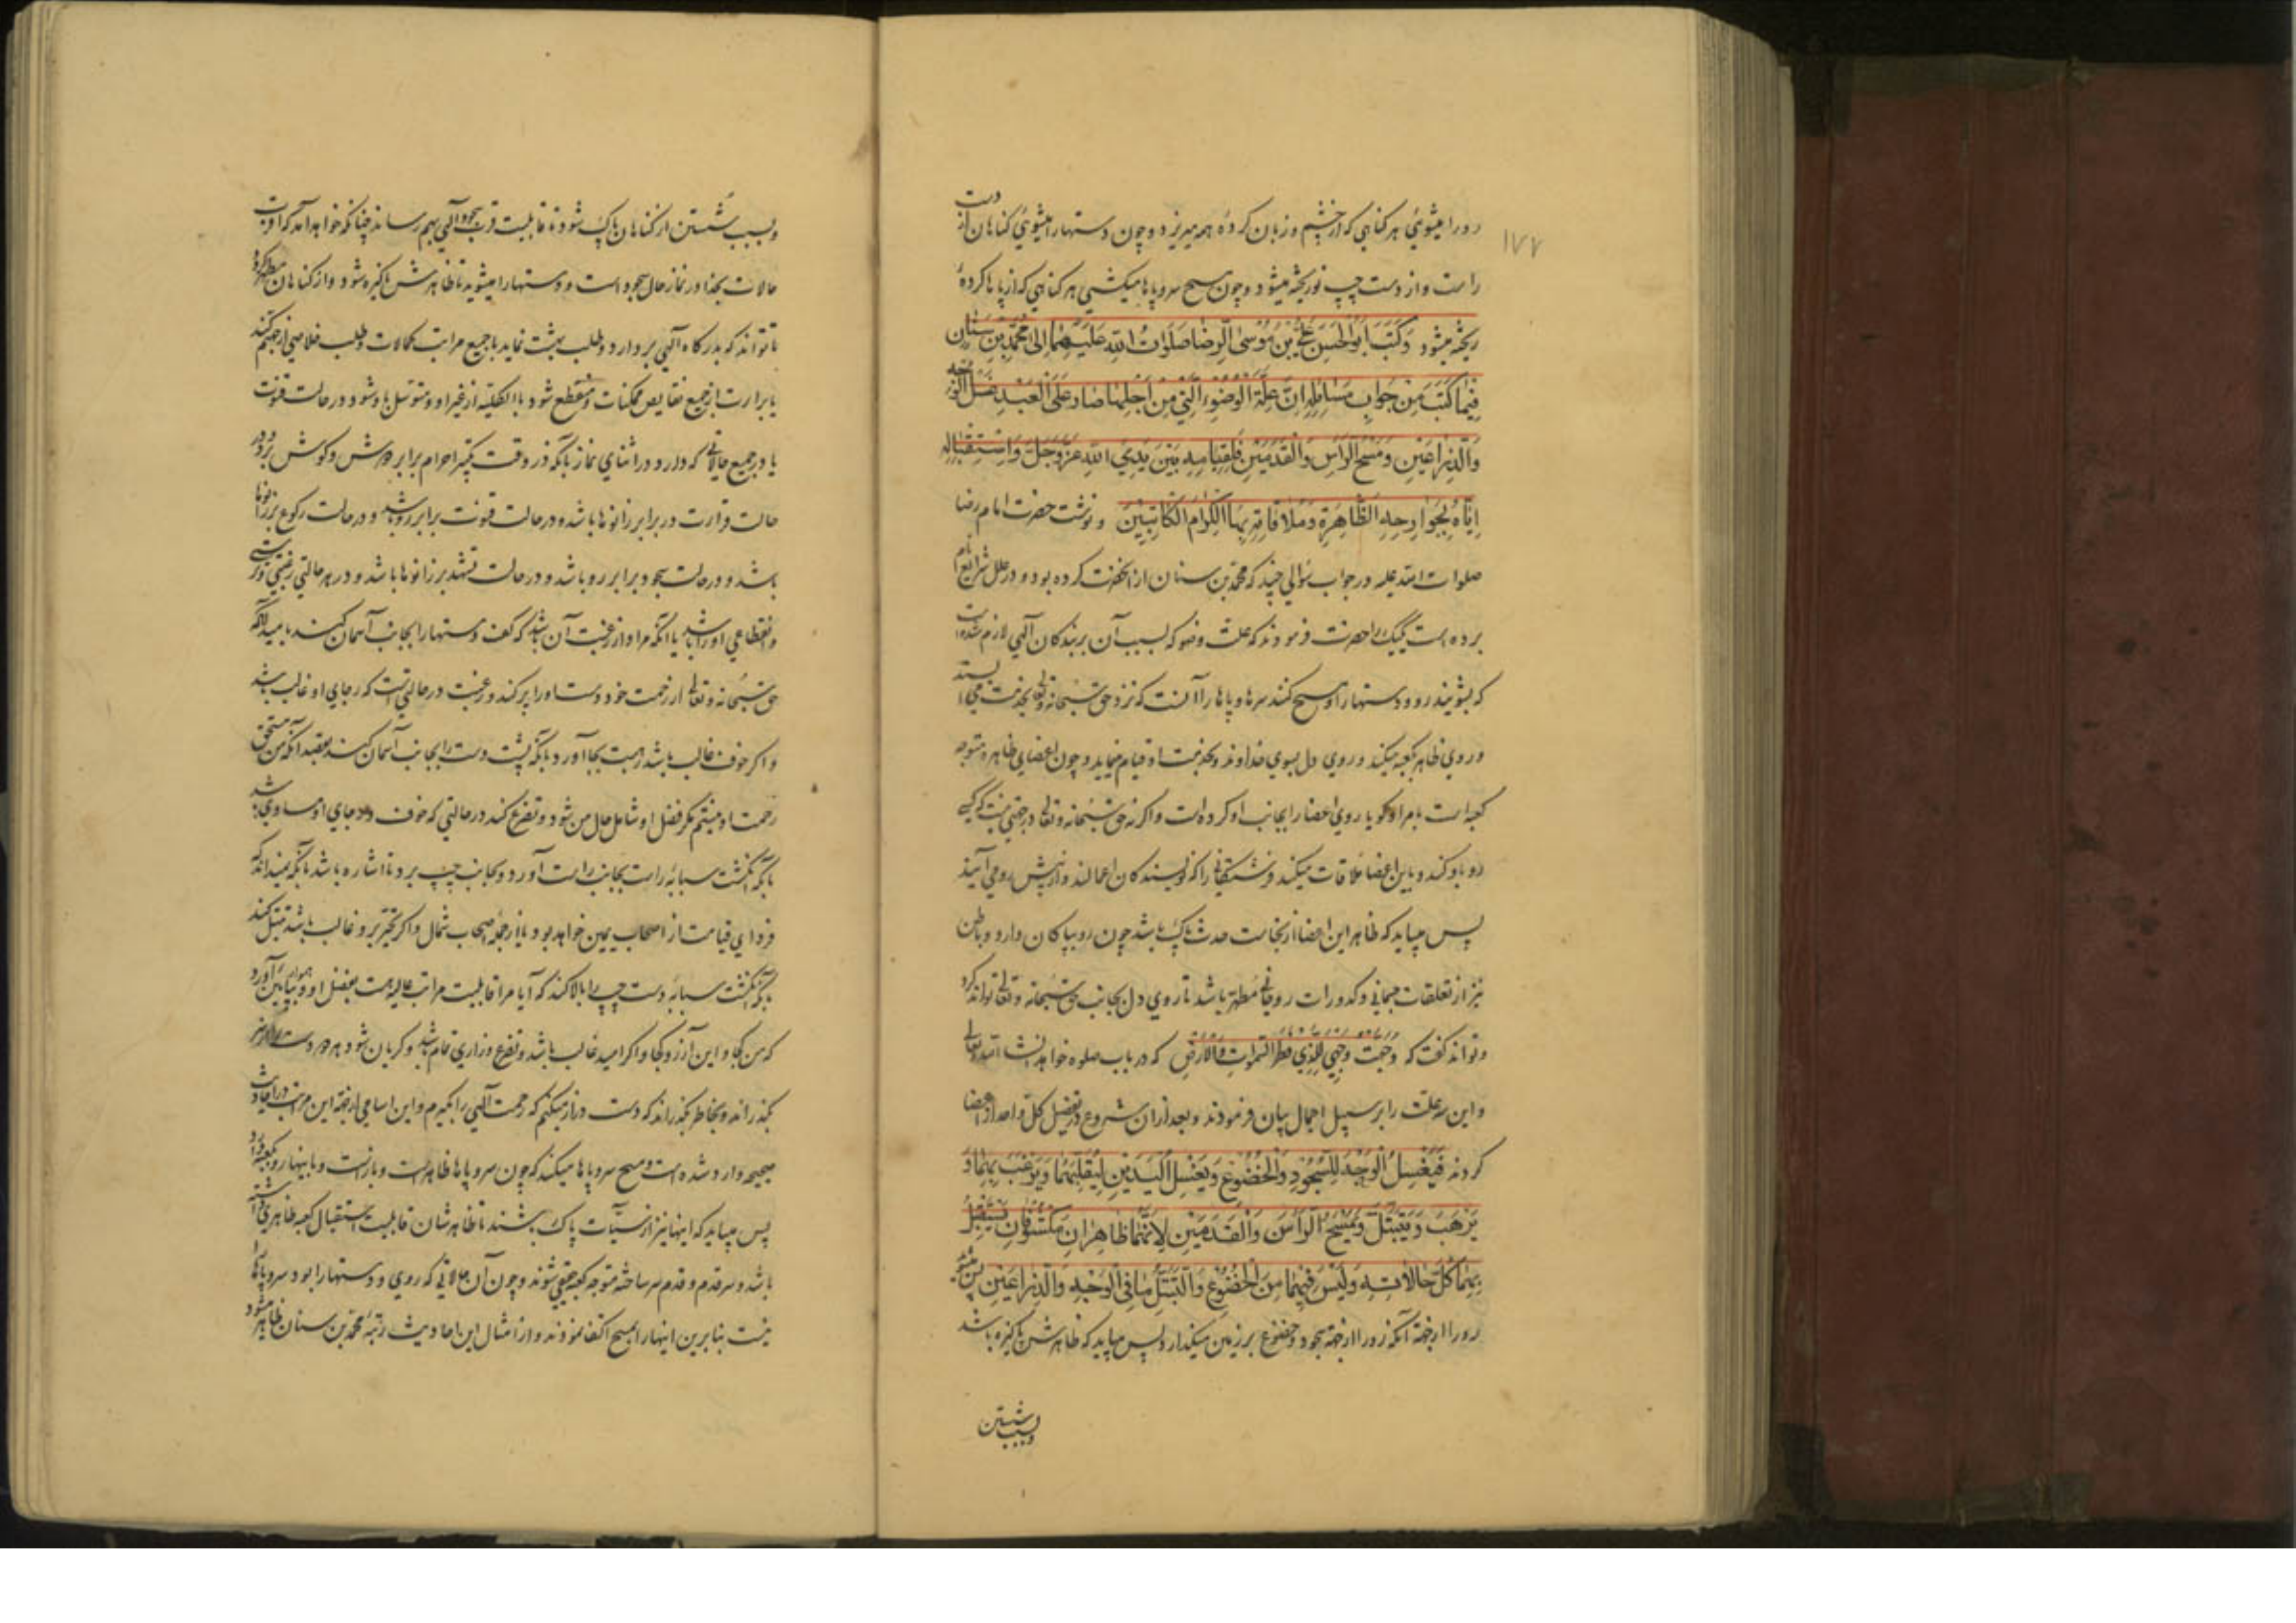 ۱۷۷
رو را میشوئی هر کناهی که از چشم و زبان کردهٔ همه میریزد و چون دستها را میشوئی کناهان از دست
راست و از دست چپ تو ریخته میشود و چون مسح سر و پاها میکشی هر کناهی که از پاها کردهٔ
ریخته میشود وَكَتَبَ اَبُوالْحَسَنِ عَلِیُّ بْنُ مُوسَی الرِّضَا صَلَوَاتُ اللّٰهِ عَلَیْهِمَا اِلٰی مُحَمَّدِ بْنِ سِنَانٍ
فِیْمَا كَتَبَ مِنْ جَوَابِ مَسَائِلِهِ اِنَّ عِلَّةَ الْوُضُوءِ الَّتِي مِنْ اَجْلِهَا صَارَ عَلَی الْعَبْدِ غَسْلُ الْوَجْهِ
وَالذِّرَاعَیْنِ وَمَسْحُ الرَّأْسِ وَالْقَدَمَیْنِ فَلِقِیَامِهِ بَیْنَ یَدَيِ اللّٰهِ عَزَّوَجَلَّ وَاسْتِقْبَالِهِ
اِیَّاهُ بِجَوَارِحِهِ الظَّاهِرَةِ وَمُلَاقَاتِهِ بِهَا الْكِرَامَ الْكَاتِبِیْنَ و نوشت حضرت امام رضا
صلوات الله علیه در جواب سؤالی چند که محمد بن سنان از آنحضرت کرده بود و در علل شرایع نام
برده است یکیک را حضرت فرمودند که علت وضو که بسبب آن بر بندکان آلهی لازم شده است
که بشویند رو و دستها را و مسح کنند سرها و پاها را آنست که نزد حق سبحانه و تعالی بخدمت می ایستد
و روی ظاهر بکعبه میکند و روی دل بسوی خداوند و بخدمت او قیام مینماید و چون اعضای ظاهره متوجه
کعبه است بامر او کویا روی اعضا را بجانب او کرده است و اکرنه حق سبحانه و تعالی در جهتی نیست که کسی
رو باو کند و باین اعضا ملاقات میکند فرشتکانی را که نویسندکان اعمالند و از پیش رو می آیند
پس میباید که ظاهر این اعضا از نجاست حدث پاک باشد چون رو بپاکان دارد و باطن
نیز از تعلقات جسمانی و کدورات روحانی مطهر باشد تا روی دل بجانب حق سبحانه و تعالی تواند کرد
و تواند کفت که وَجَّهْتُ وَجْهِيَ لِلَّذِي فَطَرَ السَّمٰوَاتِ وَالْاَرْضَ که در باب صلوه خواهد آمد انشاءالله تعالی
و این سه علت را بر سبیل اجمال بیان فرمودند و بعد از ان شروع در تفصیل کل واحد از اعضا
کردند فَیَغْسِلُ الْوَجْهَ لِلسُّجُودِ وَالْخُضُوعِ وَیَغْسِلُ الْیَدَیْنِ لِیُقَلِّبَهُمَا وَیَرْغَبَ بِهِمَا وَ
یَرْهَبَ وَیَتَبَتَّلَ وَیَمْسَحُ الرَّأْسَ وَالْقَدَمَیْنِ لِاَنَّهُمَا ظَاهِرَانِ مَكْشُوفَانِ یَسْتَقْبِلُ
بِهِمَا كُلَّ حَالَاتِهِ وَلَیْسَ فِیْهِمَا مِنَ الْخُضُوعِ وَالتَّبَتُّلِ مَا فِي الْوَجْهِ وَالذِّرَاعَیْنِ پس میشوید
رو را از جهة آنکه رو را از جهة سجود و خضوع بر زمین میکذارد پس میباید که ظاهرش پاکیزه باشد
و بسبب شستن
و بسبب شستن از کناهان پاک شود تا قابلیت قرب سجود آلهی بهم رساند چنانکه خواهد آمد که اقرب
حالات بخدا در نماز حال سجود است و دستها را میشوید تا ظاهرش پاکیزه شود و از کناهان مطهر کردد
تا تواند که بدرکاه آلهی بردارد و طلب بهشت نماید با جمیع مراتب کمالات و طلب خلاصی از جهنم کند
یا برارت از جمیع نقایص ممکنات و منقطع شود بالکلیه از غیر او و متوسل باو شود در حالت قنوت
یا در جمیع حالاتی که دارد در اثنای نماز بآنکه در وقت تکبیر احرام برابر دوش و کوش برد و در
حالت قرارت در برابر زانوها باشد و در حالت قنوت برابر رو باشد و در حالت رکوع بر زانوها
باشد و در حالت سجود برابر رو باشد و در حالت تشهد بر زانوها باشد و در هر حالتی رغبتی و رهبتی
و انقطاعی او را باشد یا آنکه مراد از رغبت آن باشد که کف دستها را بجانب آسمان کند بامید آنکه
حق سبحانه و تعالی از رحمت خود دست او را پر کند و رغبت در حالتی است که رجای او غالب باشد
و اکر خوف غالب باشد رهبت بجا آورد بآنکه پشت دست را بجانب آسمان کند بقصد آنکه من مستحق
رحمت او نیستم مکر فضل او شامل حال من شود و تضرع کند در حالتی که خوف و رجای او مساوی باشد
بآنکه انکشت سبابهٔ راست بجانب راست آورد و بجانب چپ برد تا اشاره باشد بآنکه نمیداند که
فردای قیامت از اصحاب یمین خواهد بود یا از جمله اصحاب شمال و اکر تحیر برو غالب باشد تبتل کند
بآنکه انکشت سبابهٔ دست چپ را بالا کند که آیا مرا قابلیت مراتب عالیه هست بفضل او و بپایین آورد
که من کجا و این آرزو کجا و اکر امید غالب باشد و تضرع و زاری تمام باشد و کریان شود هر دو دست را از سر
بکذراند و بخاطر بکذراند که دست دراز میکنم که رحمت آلهی را بکیرم و این اسامی از جهة این مراتب در احادیث
صحیحه وارد شده است و مسح سر و پاها میکند که چون سر و پاها ظاهر است و باز است و باینها رو بکعبه دارد
پس میباید که اینها نیز از سیئات پاک باشند تا ظاهرشان قابلیت استقبال کعبه ظاهری داشته
باشد و سر قدم و قدم سر ساخته متوجه کعبه حقیقی شوند و چون آن حالاتی که روی و دستها را بود سر و پاها را
نیست بنابرین اینها را بمسح اکتفا نمودند و از امثال این احادیث رتبهٔ محمد بن سنان ظاهر میشود